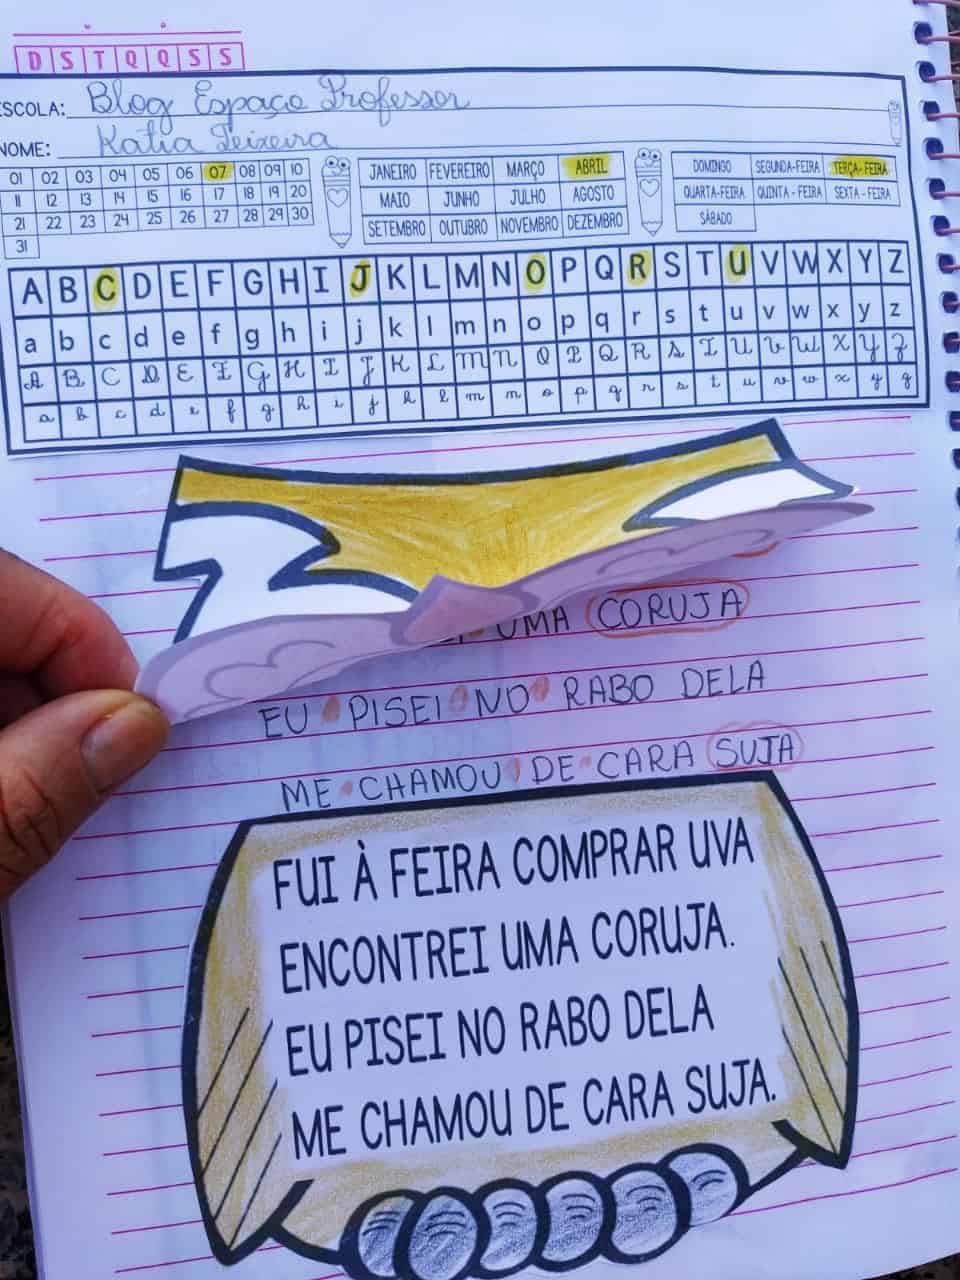 D S T Q Q S S
ESCOLA: Blog Espaço Professor
NOME: Katia Teixeira
01 02 03 04 05 06 07 08 09 10
11 12 13 14 15 16 17 18 19 20
21 22 23 24 25 26 27 28 29 30
31
JANEIRO FEVEREIRO MARÇO ABRIL
MAIO JUNHO JULHO AGOSTO
SETEMBRO OUTUBRO NOVEMBRO DEZEMBRO
DOMINGO SEGUNDA-FEIRA TERÇA-FEIRA
QUARTA-FEIRA QUINTA-FEIRA SEXTA-FEIRA
SÁBADO
A B C D E F G H I J K L M N O P Q R S T U V W X Y Z
a b c d e f g h i j k l m n o p q r s t u v w x y z
A B C D E F G H I J K L M N O P Q R S T U V W X Y Z
a b c d e f g h i j k l m n o p q r s t u v w x y z
UMA CORUJA
EU PISEI NO RABO DELA
ME CHAMOU DE CARA SUJA
FUI À FEIRA COMPRAR UVA
ENCONTREI UMA CORUJA.
EU PISEI NO RABO DELA
ME CHAMOU DE CARA SUJA.